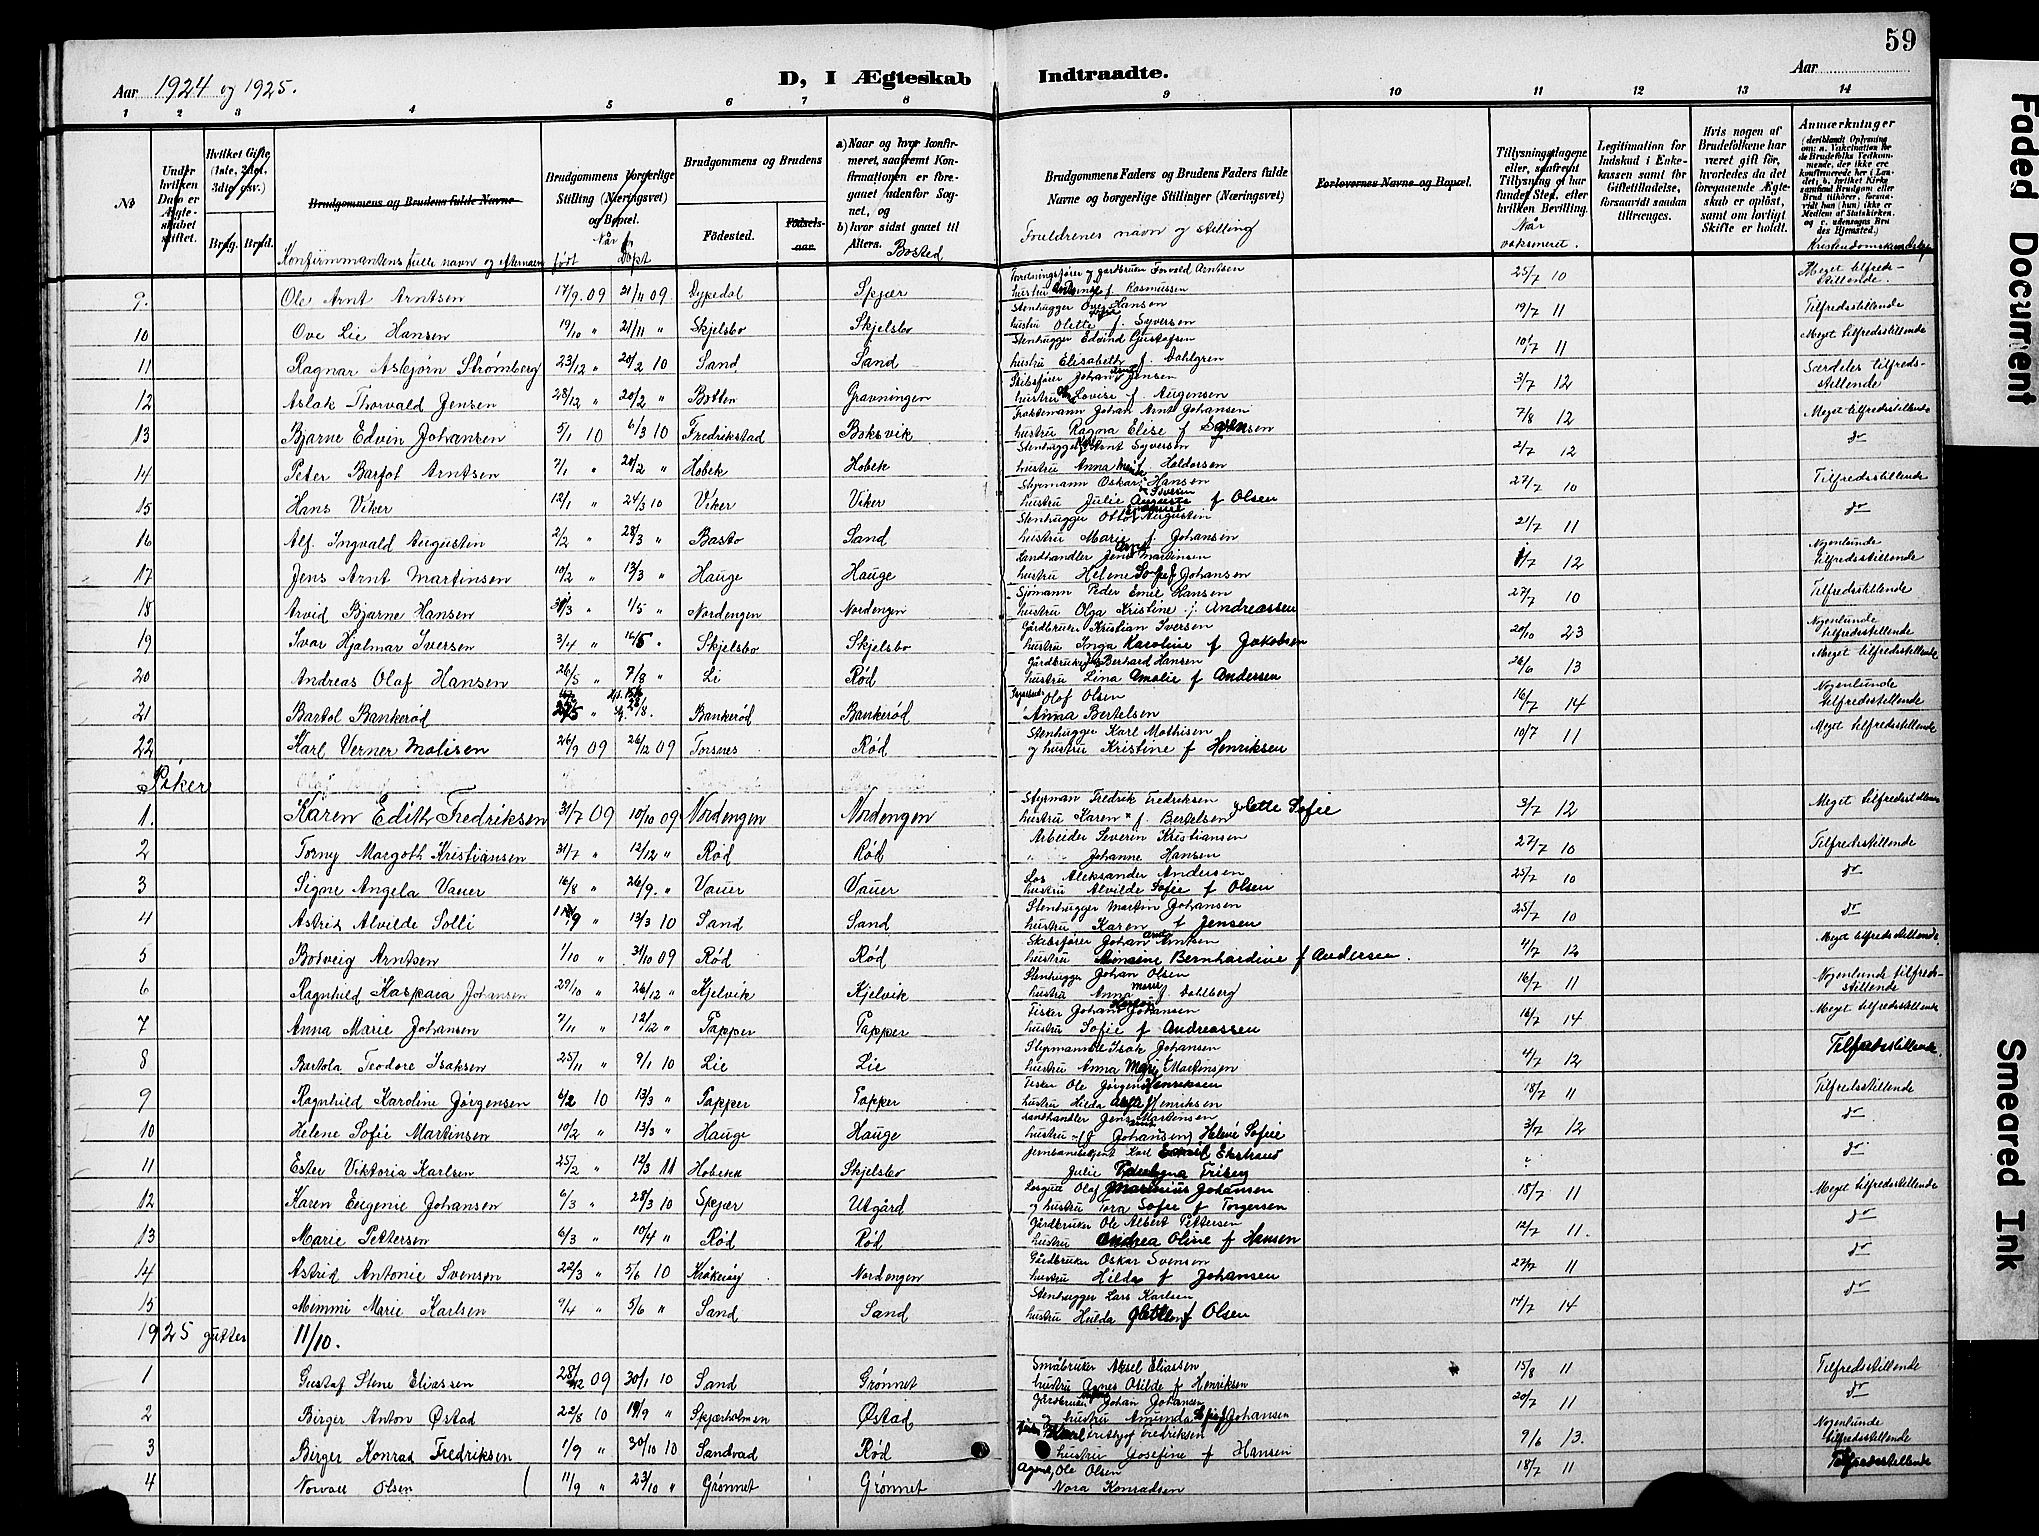 59
Aar 1924 og 1925.
D, I Ægteskab Indtraadte.
Aar
1 2 3 4 5 6 7 8 9 10 11 12 13 14
No
Under hvilken Datum er Ægteskabet stiftet.
Hvilket Gifte (1ste, 2det, 3die gav.)
Brdg. Brud.
Brudgommens og Brudens fulde Navne
Konfirmmantens fulle navn og efternavn
Brudgommens borgerlige Stilling (Næringsvei) og Bopæl.
Når født Døpt
Brudgommens og Brudens
Fødested. Fødselsaar.
a) Naar og hvor konfirmeret, saafremt Konfirmationen er foregaaet udenfor Sognet, og
b) hvor sidst gaaet til Alters.
Bosted
Brudgommens Faders og Brudens Faders fulde Navne og borgerlige Stillinger (Næringsvei)
Forldrenes navn og stilling
Forlovernes Navne og Bopæl.
Tillysningsdagene eller, saafremt Tillysning ei har fundet Sted, efter hvilken Bevilling.
Når vaksineret.
Legitimation for Indskud i Enkekassen samt for Giftetilladelse, forsaavidt saadan tiltrænges.
Hvis nogen af Brudefolkene har været gift før, hvorledes da det foregaaende Ægteskab er opløst, samt om lovligt Skifte er holdt.
Anmærkninger
9. Ole Arnt Arntsen 17/9 09 21/11 09 Dypedal Spjær gardbruker Invald Arntsen hustru f Rasmussen 25/7 10 Meget tilfredsstillende.
10 Ove Lie Hansen 19/10 " 21/11 " Skjelsbo Skjelsbo Stenhugger Ove Hansen hustru Olette f. Syversen 19/7 11 Tilfredsstillende
11 Ragnar Asbjørn Strømberg 23/12 " 20/2 10 Sand Sand Stenhugger Edvind Gustafsen hustru Elisabeth f. Dahlgren 10/7 11 Meget tilfredsstillende
12 Aslak Thorvald Jensen 28/12 " 20/2 " Botten Gravningen Skibsfører Johan Jensen hustru Lovise f Augensen 3/7 12 Særdeles tilfredsstillende
13 Bjarne Edvin Johansen 5/1 10 6/3 10 Fredrikstad Boksvik Johan Arnt Johansen hustru Ragna Elise f Sørensen 7/8 12 Meget tilfredsstillende
14 Peter Bartol Arntsen 7/1 " 20/2 " Hobek Hobek Stenhugger Arnt Syversen hustru Anna f Haldorsen 2/7 12 do
15 Hans Viker 12/1 " 24/3 10 Viker Viker Styrmann Oskar Hansen hustru Julie Augusta f Olsen 27/7 10 Tilfredsstillende
16 Alf. Ingvald Augustin 2/2 " 28/3 " Basto Sand Stenhugger Otto Augustin hustru Marie f Johansen 21/7 11 do
17 Jens Arnt Martinsen 10/2 " 13/3 " Hauge Hauge Landhandler Jens Martinsen hustru Helene Sofie f Johansen 1/7 12 Nogenlunde tilfredsstillende
18 Arvid Bjarne Hansen 31/3 " 1/5 " Nordengen Nordengen Sjømann Peder Emil Hansen hustru Olga Kristine f Andreassen 27/7 10 Tilfredsstillende
19 Ivar Hjalmar Iversen 3/4 " 16/5 " Skjelsbo Skjelsbo Gårdbruker Kristian Iversen hustru Inga Karoline f Jakobsen 20/10 23 Nogenlunde tilfredsstillende
20 Andreas Olaf Hansen 26/5 " 7/8 " Li Rød Gårdbruker Berhard Hansen hustru Lina Amalie f Andersen 26/6 13 Meget tilfredsstillende
21 Bartol Bankerød " Bankerød Bankerød Olaf Olsen Anna Bertelsen 16/7 14 Nogenlunde tilfredsstillende
22 Karl Verner Matisen 26/9 09 26/12 09 Torsnes Rød Stenhugger Karl Mathisen og hustru Kristine f Henriksen 10/7 11 Meget tilfredsstillende
Piker
1. Karen Edith Fredriksen 31/7 09 10/10 09 Nordengen Nordengen Styrman Fredrik Fredriksen hustru Karen f. Bertelsen Olette Sofie 3/7 12 Meget tilfredsstillende
2 Torny Margoth Kristiansen 31/7 " 12/12 " Rød Rød Arbeider Severin Kristiansen Johanne Hansen 27/7 10 Tilfredsstillende
3 Signe Angela Vauer 16/8 " 26/9. " Vauer Vauer Los Aleksander Andersen hustru Alvilde Sofie f Olsen 25/7 10 do
4 Astrid Alvilde Solli " 13/3 10 Sand Sand Stenhugger Martin Johansen hustru Karen f Jensen 25/7 10 do
5 Bodveig Arntsen 1/10 " 31/10 09 Rød Rød Skibsfører Johan Arntsen hustru Bernhardine f Andersen. 4/7 12 Meget tilfredsstillende.
6 Ragnhild Kaspara Johansen 29/10 " 26/12 " Kjelvik Kjelvik Stenhugger Johan Olsen hustru Anna Marie f Dahlberg 16/7 11 Nogenlunde tilfredsstillende
7 Anna Marie Johansen 7/11 " 12/12 " Papper Papper Fisker Johan Johansen hustru Sofie f Andreassen 16/7 14 Meget tilfredsstillende
8 Bartola Teodore Isaksen 25/11 " 9/1 10 Lie Lie Styrmann Isak Johansen hustru Anna Marie f Martinsen 4/7 12 Tilfredsstillende.
9 Ragnhild Karoline Jørgensen 6/2 10 13/3 " Papper Papper Fisker Ole Jørgen Henriksen hustru Hilda f Henriksen 18/7 11 Tilfredsstillende
10 Helene Sofie Martinsen 10/2 " 13/3 " Hauge Hauge Landhandler Jens Martensen hustru (f Johansen) Helene Sofie 3/7 12 do
11 Ester Viktoria Karlsen 25/2 " 12/3 11 Hobekk Skjelsbo Karl Ekstrand Julie Friberg " do
12 Karen Eugenie Johansen 6/3 " 28/3 10 Spjær Utgård Losgutt Olaf Marinius Johansen og hustru Tora Sofie f Torgersen 18/7 11 Meget tilfredsstillende
13 Marie Pettersen 6/3 " 10/4 " Rød Rød Gårdbruker Ole Albert Pettersen hustru Andrea Oline f Hansen 12/7 11. do
14 Astrid Antonie Svensen 22/3 " 5/6 10 Kråkerøy Nordengen Gårdbruker Oskar Svensen hustru Hilda f Johansen 22/7 11 do
15 Mimmi Marie Karlsen 9/4 " 5/6 " Sand Sand Stenhugger Lars Karlsen hustru Hulda f Olsen 14/7 14 do
1925 gutter 11/10.
1 Gustaf Stene Eliassen 28/12 09 30/1 10 Sand Grønnet Småbruker Aksel Eliassen hustru Agnes Otilde f Henriksen 15/8 11 Tilfredsstillende
2 Birger Anton Østad 22/8 10 19/9 " Spjærholmen Østad Gårdbruker Johan Johansen og hustru Amunda Sofie f Johansen 20/7 11 do
3 Birger Konrad Fredriksen 1/9 " 30/10 10 Sandvad Rød Fredriksen hustru Josefine f Hansen 9/6 13. Nogenlunde tilfredsstillende
4 Norvall Olsen 11/9 " 23/10 " Grønnet Grønnet Agent, Ole Olsen Nora Konradsen 18/7 11 Tilfredsstillende
Faded Document
Smeared Ink